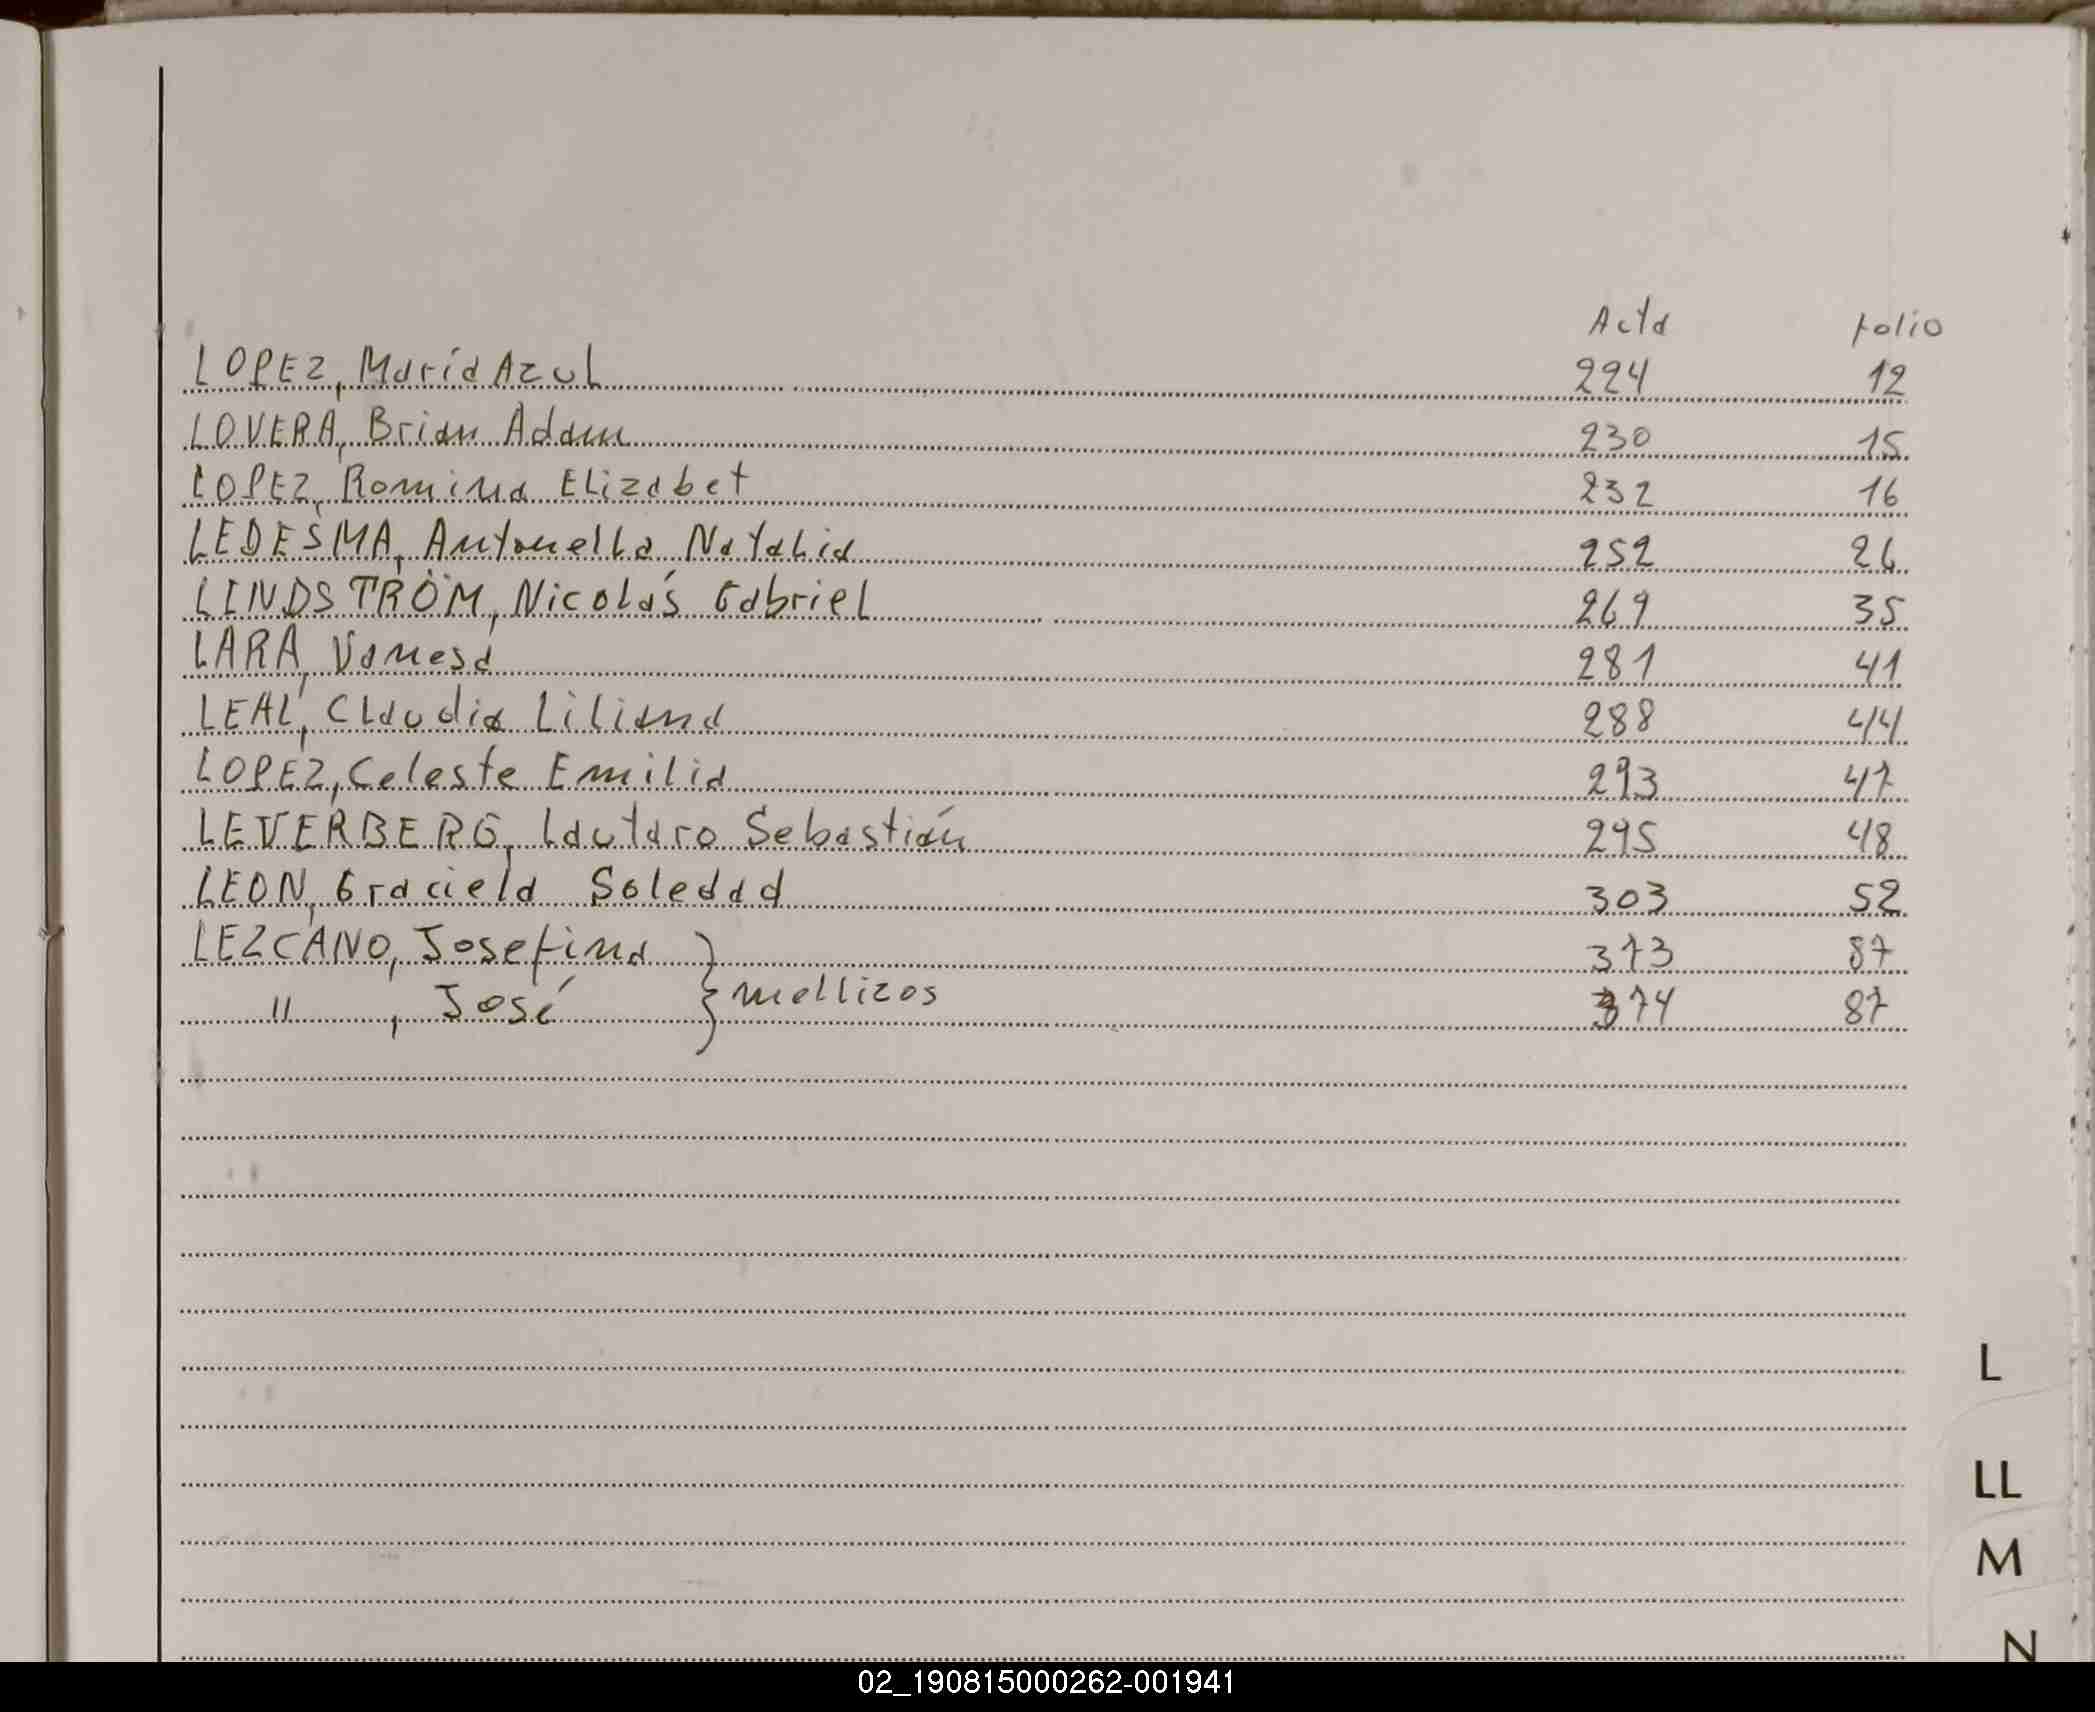 Acta folio
LOPEZ, María Azul 224 12
LOVERA, Brian Adam 230 15
LOPEZ, Romina Elizabet 232 16
LEDESMA, Antonella Natalia 252 26
LINDSTRÖM, Nicolás Gabriel 269 35
LARA, Vanesa 281 41
LEAL, Claudia Liliana 288 44
LOPEZ, Celeste Emilia 293 47
LEVERBERG, Lautaro Sebastián 295 48
LEON, Graciela Soledad 303 52
LEZCANO, Josefina 373 87
" , José } mellizos 374 87
L
LL
M
N
02_190815000262-001941